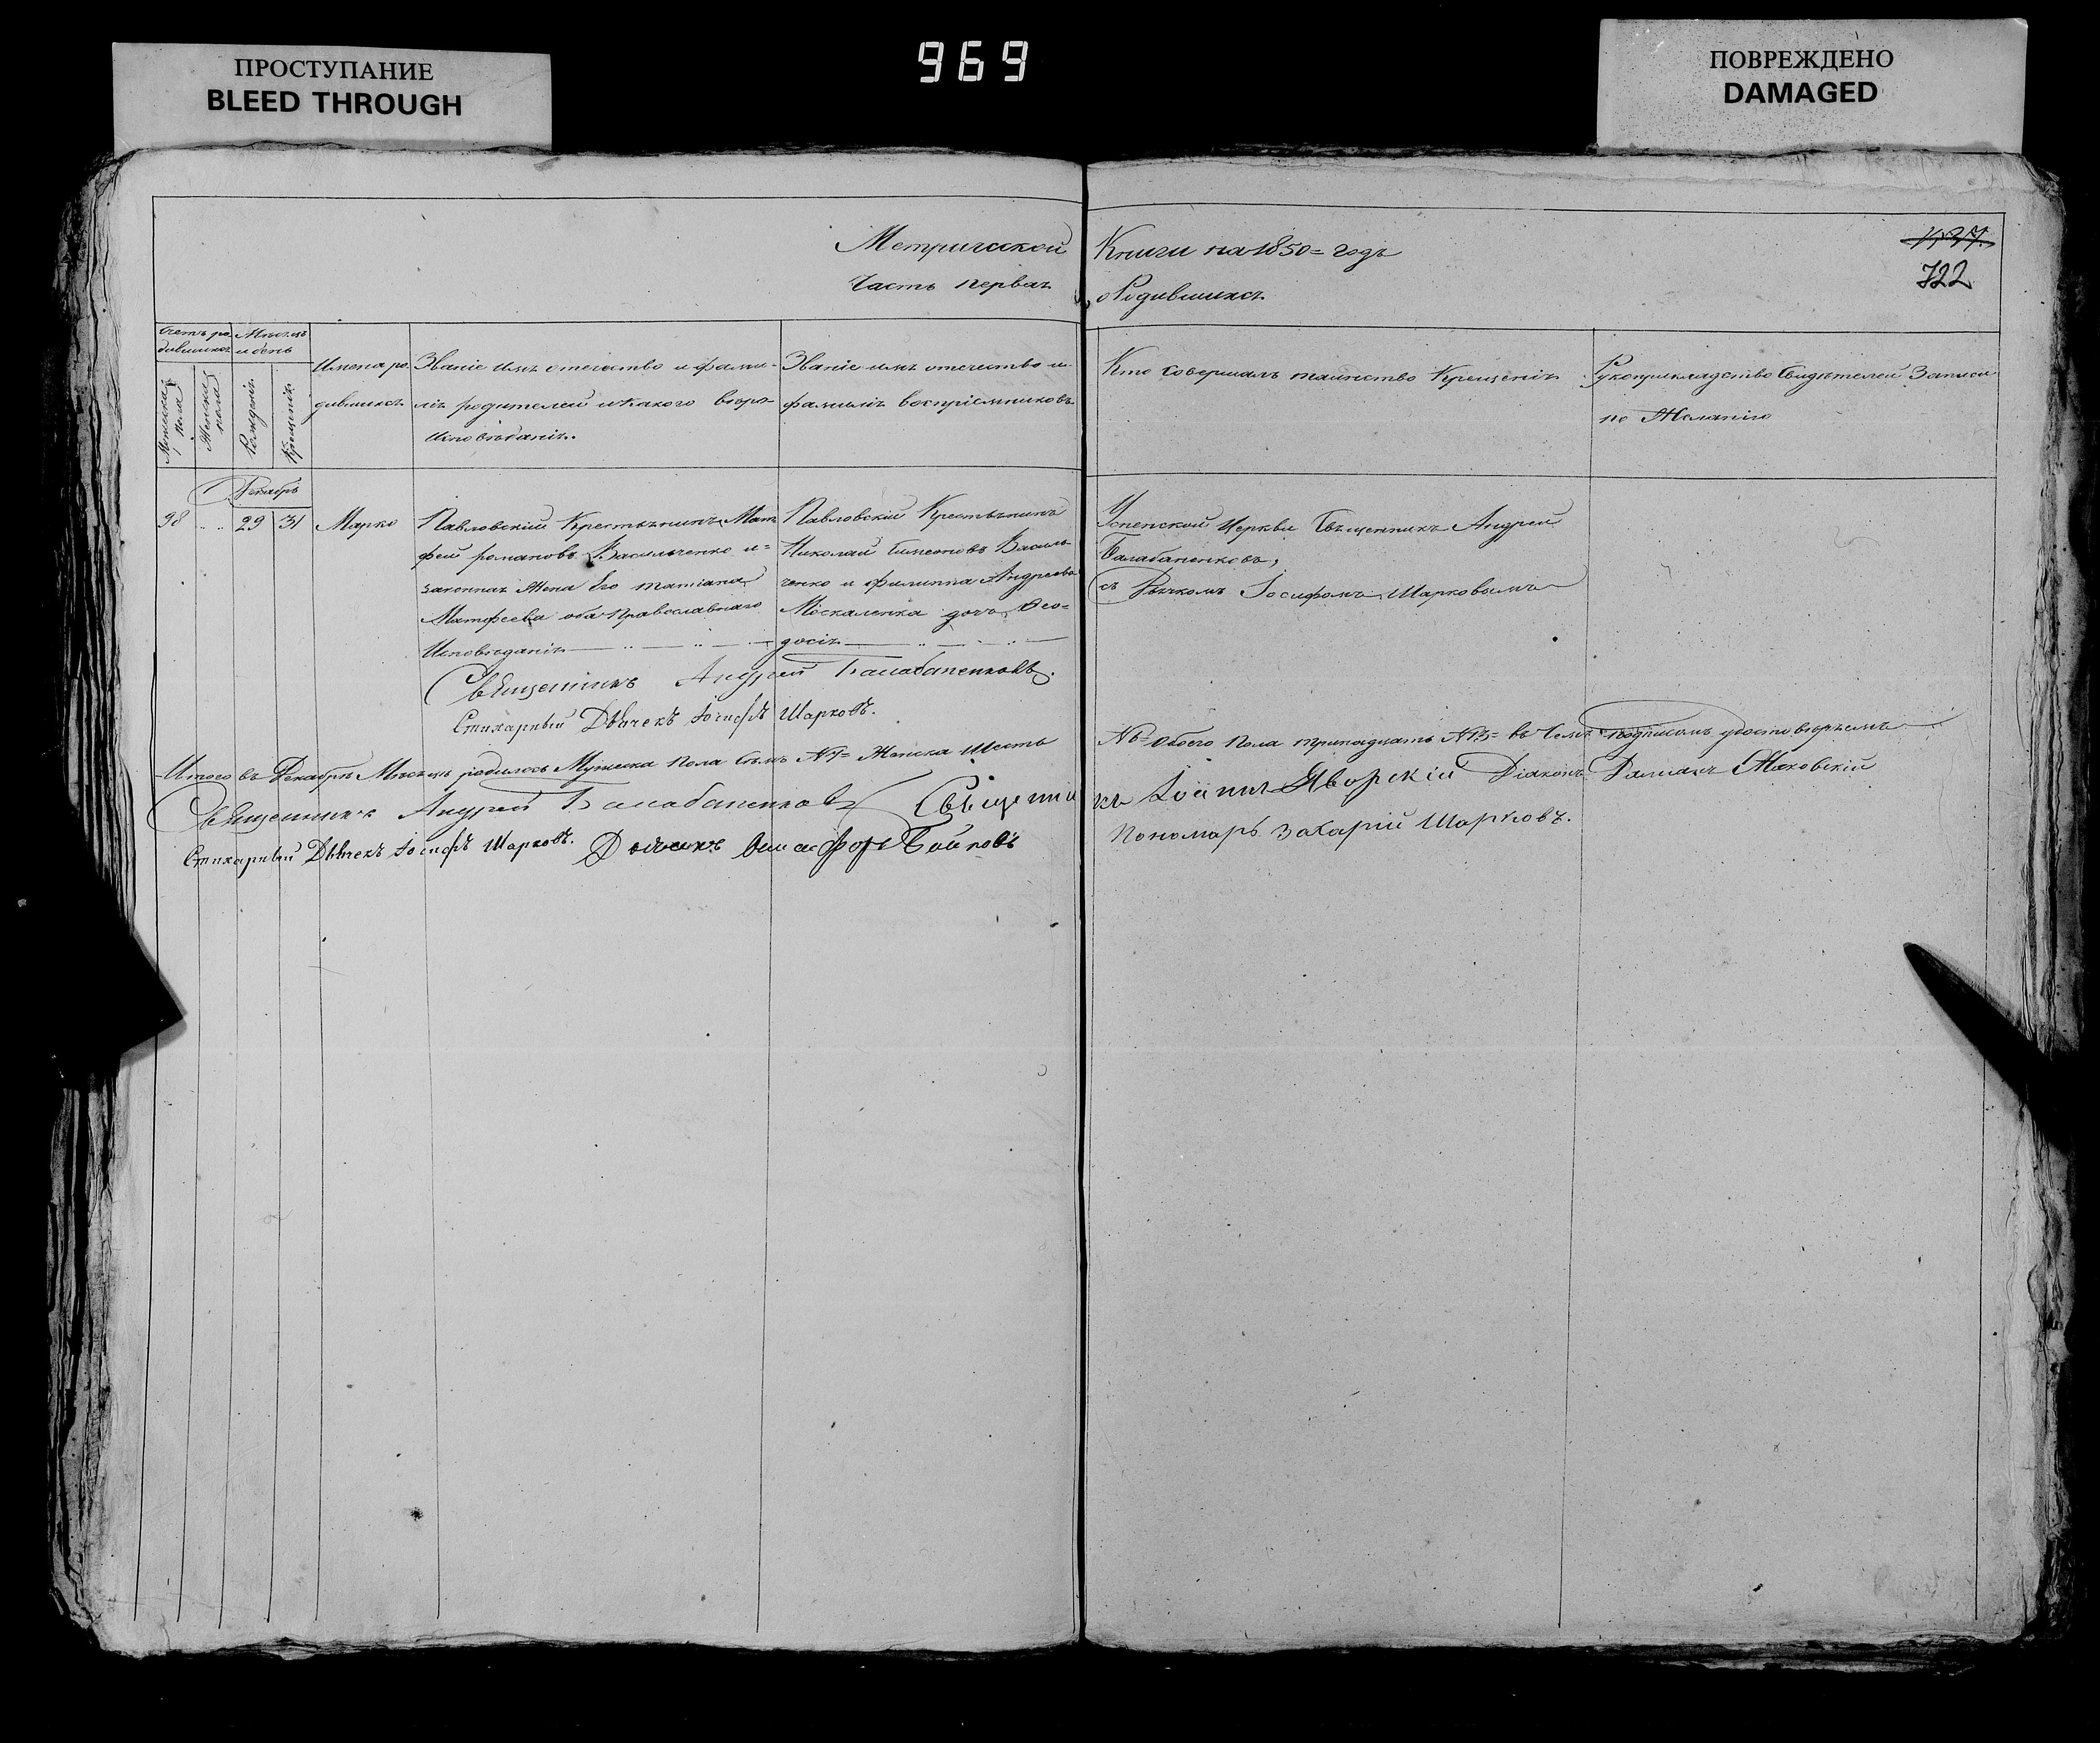 ПРОСТУПАНИЕ
BLEED THROUGH
969
ПОВРЕЖДЕНО
DAMAGED
Метрической Книги на 1850= годъ
Часть первая о Родившихся
1037
722
Счетъ ро-
дившихся
Мѣсяцъ
и день
Мужеска
пола
Женска
пола
Рожденія
Крещенія
Имена ро-
дившихся
Званіе имя отечество и фами-
лія родителей и какого вѣро-
исповѣданія.
Званіе имя отечество и
фамилія воспріемниковъ
Кто совершалъ таинство Крещенія
Рукоприкладство Свидѣтелей Записи
по Желанію
Декабрь
98 29 31 Марко
Павловскій Крестьянинъ Мат-
фей романовъ Васильченко и=
законная Жена Его татіана
Матфеева оба Православнаго
Исповѣданія
Павловскій Крестьянинъ
Николай Симеоновъ Василь-
ченко и филиппа Андреева
Москаленка дочь Ѳео=
досія
Успенской Церкви Священникъ Андрей
Балабаненковъ,
съ Дьячкомъ Іосифомъ Шарковымъ
Священникъ Андрей Балабаненковъ.
Стихарный Дьячекъ Іосифъ Шарковъ.
Итого въ Декабрѣ Мѣсяцѣ родилось Мужеска пола Семь №7= Женска Шесть №6= Обоего Пола тринадцать №13= въ Чемъ подписомъ удостовѣряемъ
Священникъ Андрей Балабаненковъ Священникъ Іоаннъ Яворскій Діаконъ Маковскій
Стихарный Дьячекъ Іосифъ Шарковъ. Дьячекъ Бойковъ Пономарь Захарій Шарковъ.